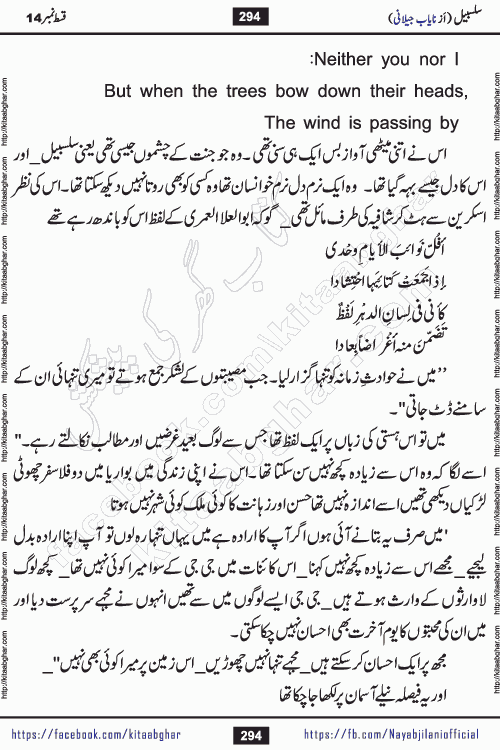 سلسبیل (از نایاب جیلانی)
294
قسط نمبر 14
:Neither you nor I
But when the trees bow down their heads,
The wind is passing by
اس نے اتنی میٹھی آواز بس ایک ہی سنی تھی۔ وہ جو جنت کے چشموں جیسی تھی یعنی سلسبیل_ اور
اس کا دل جیسے بہہ گیا تھا۔ وہ ایک نرم دل نرم خو انسان تھا وہ کسی کو بھی روتا نہیں دیکھ سکتا تھا۔ اس کی نظر
اسکرین سے ہٹ کر شافیہ کی طرف مائل تھی_ گو کہ ابوالعلا المعری کے لفظ اس کو باندھ رہے تھے
اَفُلّ نَوائبَ الاَیامِ وحْدی
اِذا جَمَعَتْ کَتائِبَہا احْتِشادا
کأنی فی لِسانِ الدہْرِ لَفْظٌ
تَضَمّنَ منہ أغْراضاً بِعادا
’’میں نے حوادثِ زمانہ کو تنہا گزار لیا۔ جب مصیبتوں کے لشکر جمع ہوتے تو میری تنہائی ان کے
سامنے ڈٹ جاتی"۔
میں تو اس ہستی کی زباں پر ایک لفظ تھا جس سے لوگ بعید غرضیں اور مطالب نکالتے رہے۔"
اسے لگا کہ وہ اس سے زیادہ کچھ نہیں سن سکتا تھا۔ اس نے اپنی زندگی میں بواریا میں دو فلاسفر چھوٹی
لڑکیاں دیکھی تھیں اسے اندازہ نہیں تھا حسن اور زہانت کا کوئی ملک کوئی شہر نہیں ہوتا
'میں صرف یہ بتانے آئی ہوں اگر آپ کا ارادہ ہے میں یہاں تنہا رہ لوں تو آپ اپنا ارادہ بدل
لیجیے_ مجھے اس سے زیادہ کچھ نہیں کہنا_ اس کائنات میں جی جی کے سوا میرا کوئی نہیں تھا_ کچھ لوگ
لاوارثوں کے وارث ہوتے ہیں_ جی جی ایسے لوگوں میں سے تھیں انہوں نے مجھے سرپرست دیا اور
میں ان کی محبتوں کا یوم آخرت بھی احسان نہیں چکا سکتی۔
مجھ پر ایک احسان کر سکتے ہیں_ مجھے تنہا نہیں چھوڑیں۔ اس زمین پر میرا کوئی بھی نہیں"_
اور یہ فیصلہ نیلے آسمان پر لکھا جا چکا تھا
https://facebook.com/kitaabghar
294
https://fb.com/Nayabjilaniofficial
http://kitaabghar.com